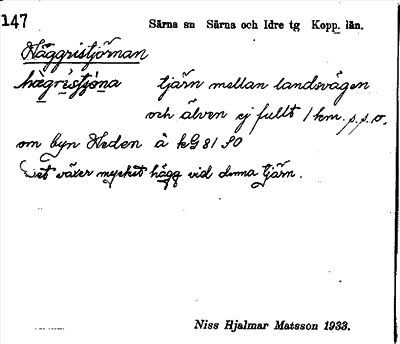 147
Särna sn Särna och Idre tg Kopp. län.
Häggristjörnan
hägristjóna tjärn mellan landsvägen
och älven ej fullt 1 km. s.s.o.
om byn Heden å kG 81 SO
Det växer mycket hägg vid denna tjärn.
Niss Hjalmar Matsson 1933.